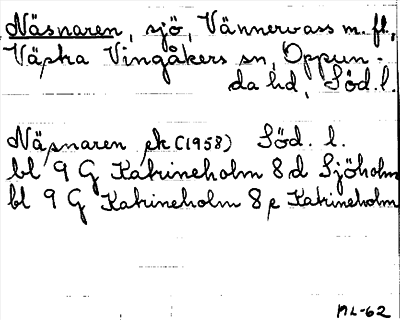 Näsnaren, sjö, Vännevass m. fl.,
Västra Vingåkers sn, Oppun-
da hd, Söd. l.
Näsnaren ek (1958) Söd. l.
bl 9 G Katrineholm 8 d Sjöholm
bl 9 G Katrineholm 8 e Katrineholm
ML-62